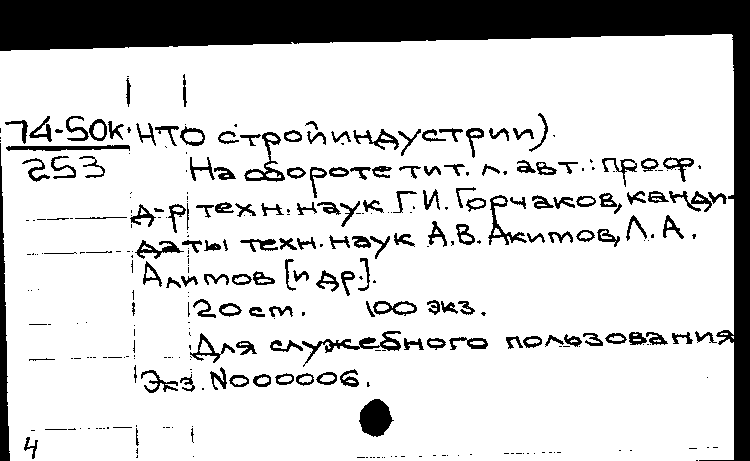 74-50к НТО стройиндустрии).
253 На обороте тит. л. авт.: проф.
д-р техн. наук Г.И. Горчаков, канди-
даты техн. наук А.В. Акимов, Л.А.
Алимов [и др.].
20 см. 100 экз.
Для служебного пользования
Экз. N000006.
4